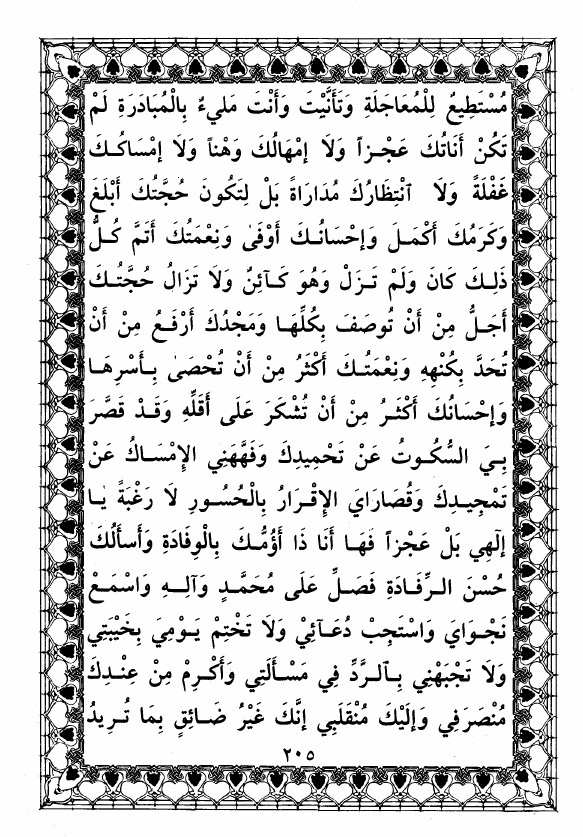 مُسْتَطِيعٌ لِلْمُعَاجَلَةِ وَتَأَنَّيْتَ وَأَنْتَ مَلِيءٌ بِالْمُبَادَرَةِ لَمْ
تَكُنْ أَنَاتُكَ عَجْزاً وَلَا إِمْهَالُكَ وَهْناً وَلَا إِمْسَاكُكَ
غَفْلَةً وَلَا ٱنْتِظَارُكَ مُدَارَاةً بَلْ لِتَكُونَ حُجَّتُكَ أَبْلَغَ
وَكَرَمُكَ أَكْمَلَ وَإِحْسَانُكَ أَوْفَىٰ وَنِعْمَتُكَ أَتَمَّ كُلُّ
ذٰلِكَ كَانَ وَلَمْ تَزَلْ وَهُوَ كَآئِنٌ وَلَا تَزَالُ حُجَّتُكَ
أَجَلُّ مِنْ أَنْ تُوصَفَ بِكُلِّهَا وَمَجْدُكَ أَرْفَعُ مِنْ أَنْ
تُحَدَّ بِكُنْهِهِ وَنِعْمَتُكَ أَكْثَرُ مِنْ أَنْ تُحْصَىٰ بِأَسْرِهَا
وَإِحْسَانُكَ أَكْثَرُ مِنْ أَنْ تُشْكَرَ عَلَى أَقَلِّهِ وَقَدْ قَصَّرَ
بِيَ السُّكُوتُ عَنْ تَحْمِيدِكَ وَفَهَّهَنِي الإِمْسَاكُ عَنْ
تَمْجِيدِكَ وَقُصَارَايَ الإِقْرَارُ بِالْحُسُورِ لَا رَغْبَةً يٰا
إِلٰهِي بَلْ عَجْزاً فَهَا أَنَا ذَا أَؤُمُّكَ بِالْوِفَادَةِ وَأَسأَلُكَ
حُسْنَ الرِّفَادَةِ فَصَلِّ عَلَى مُحَمَّدٍ وَآلِهِ وَاسْمَعْ
نَجْوَايَ وَاسْتَجِبْ دُعَآئِيْ وَلَا تَخْتِمْ يَوْمِيَ بِخَيْبَتِي
وَلَا تَجْبَهْنِي بِٱلرَّدِّ فِي مَسْأَلَتِي وَأَكْرِمْ مِنْ عِنْدِكَ
مُنْصَرَفِي وَإِلَيْكَ مُنْقَلَبِي إِنَّكَ غَيْرُ ضَائِقٍ بِمَا تُرِيدُ
٢٠٥